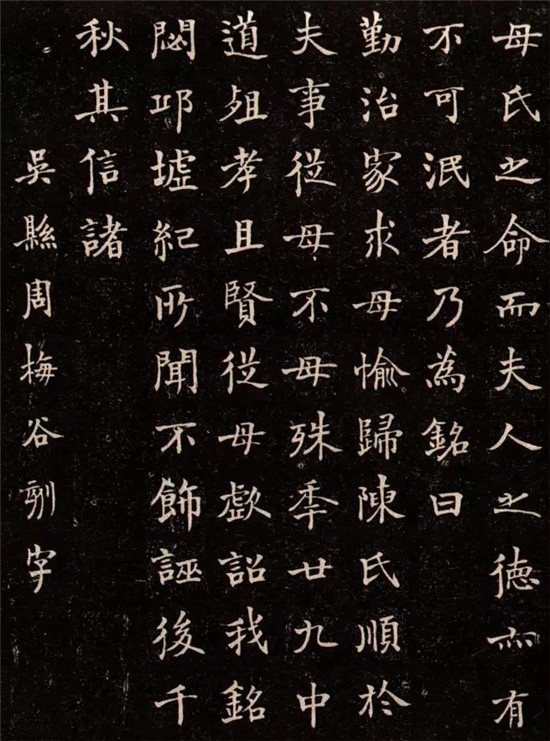 母氏之命而夫人之徳亦有
不可泯者乃為銘曰
勤治家求母愉歸陳氏順於
夫事從母不母殊秊廿九中
道殂孝且賢從母歔詔我銘
閟邙墟紀所聞不飾誣後千
秋其信諸
吳縣周梅谷刻字